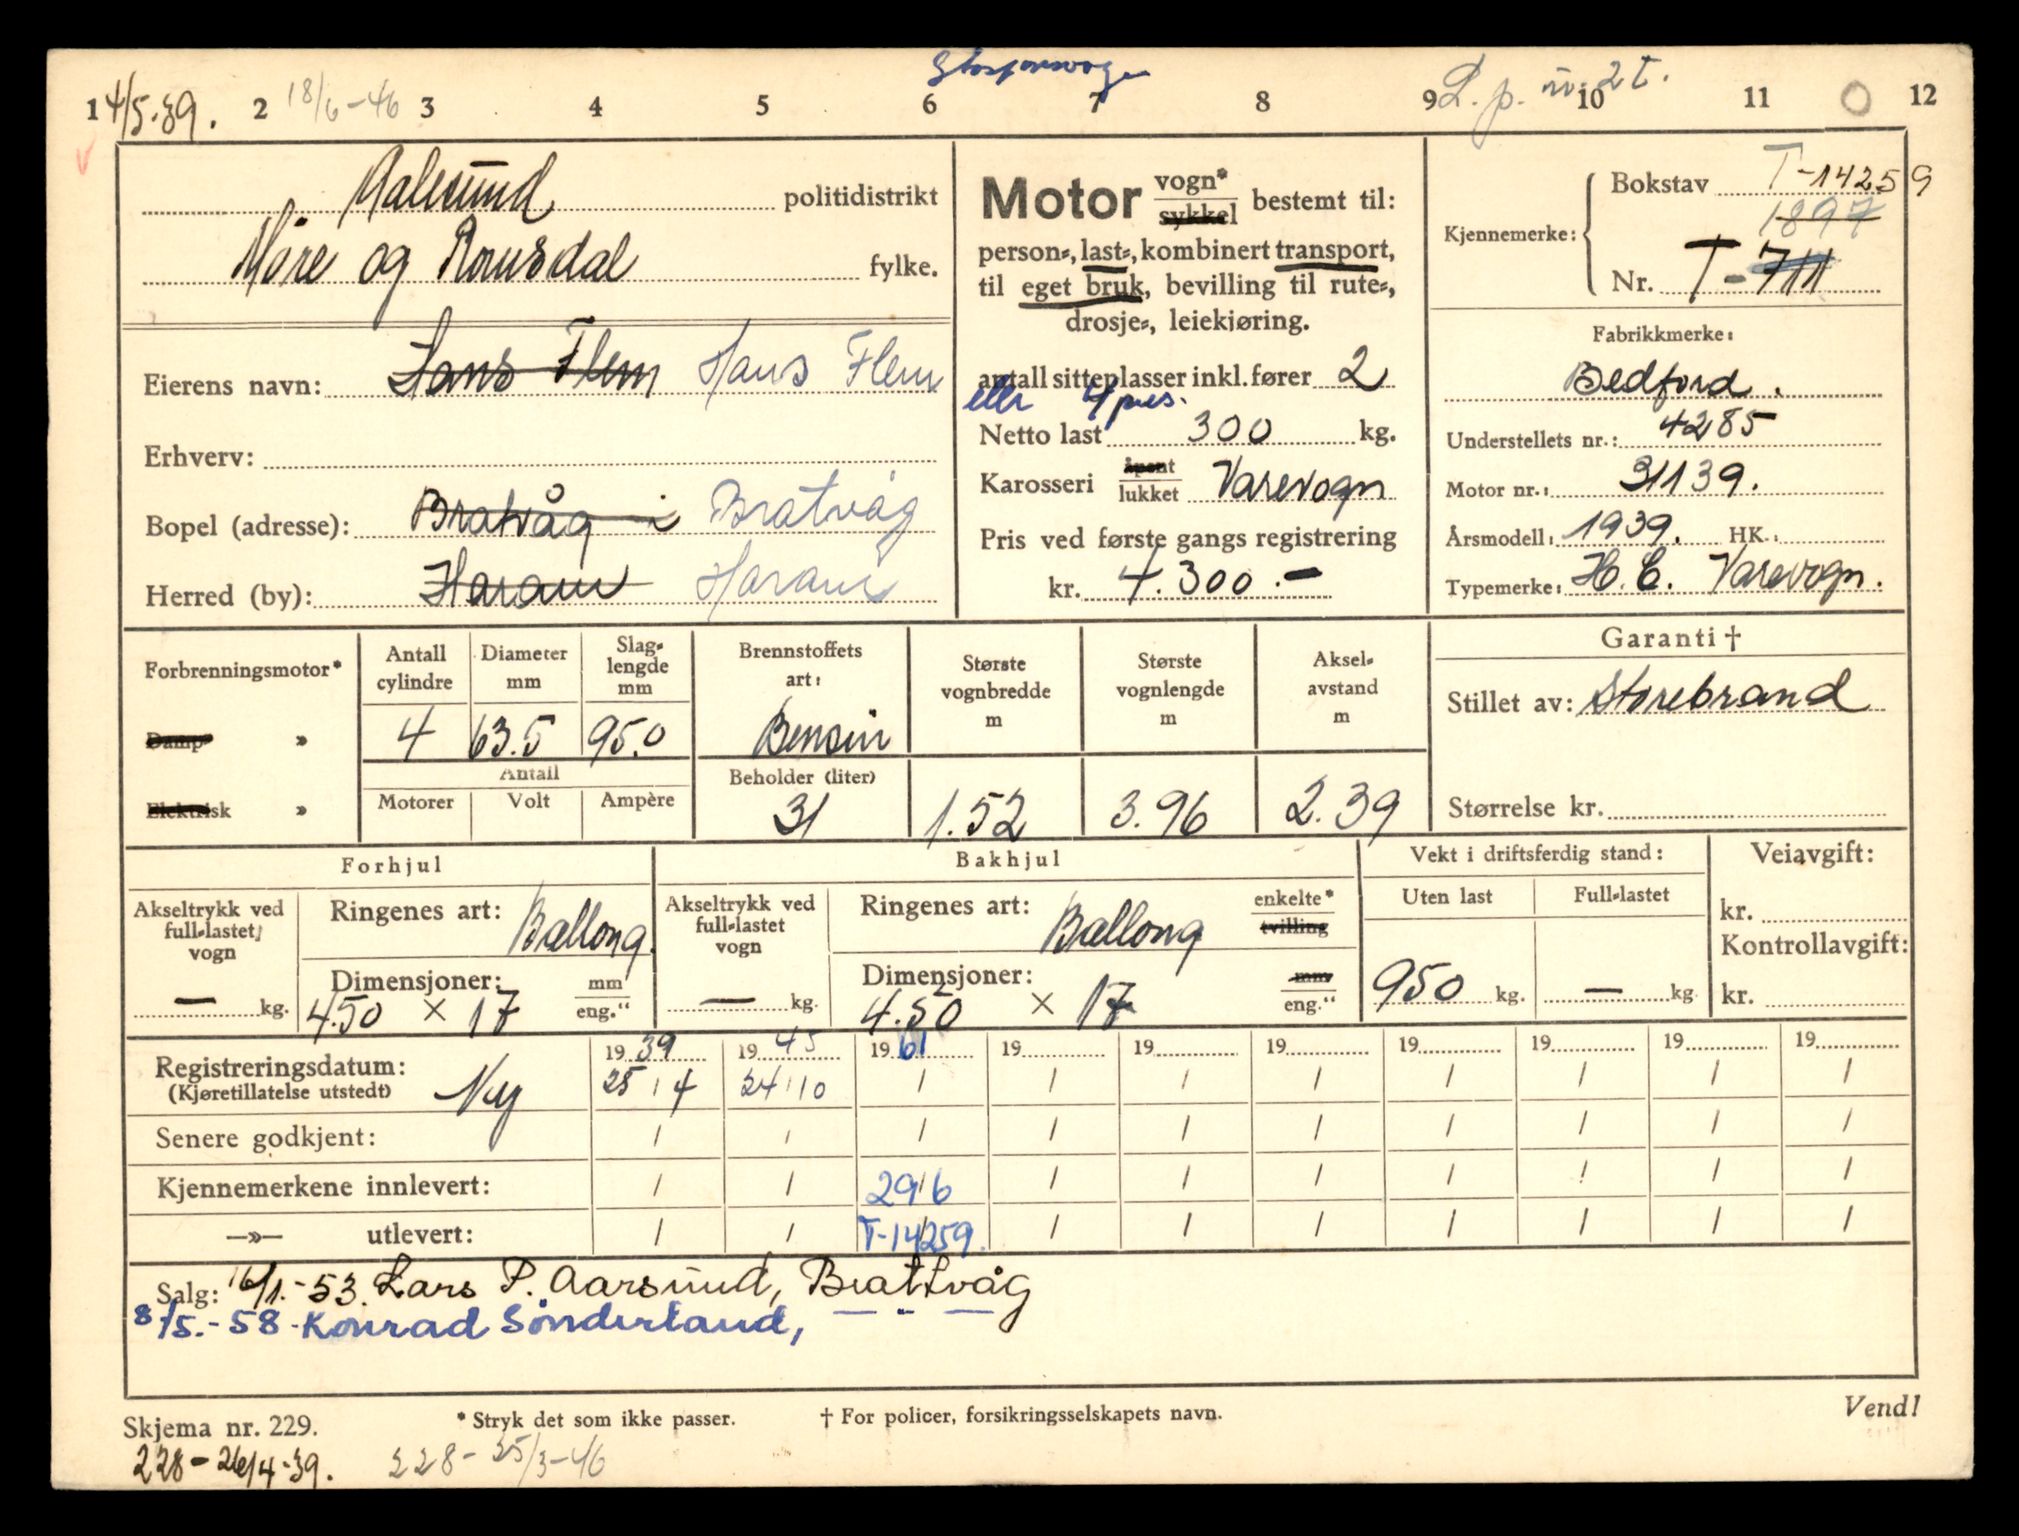 1 4/5.39. 2 18/6-46 3 4 5 6 7 8 9 L.p. 10 2t. 11 O 12
Aalesund politidistrikt
Møre og Romsdal fylke.
Eierens navn: Hans Flem Hans Flem
Erhverv:
Bopel (adresse): Bratvåg i Bratvåg
Herred (by): Haram Haram
Motor vogn* sykkel bestemt til:
person-, last-, kombinert transport,
til eget bruk, bevilling til rute-,
drosje-, leiekjøring.
antall sitteplasser inkl. fører 2
eller 4 pers.
Netto last 300 kg.
Karosseri åpent lukket Varevogn
Pris ved første gangs registrering
kr. 4.300.-
Kjennemerke: Bokstav T-14259
1897
Nr. T-711
Fabrikkmerke:
Bedford.
Understellets nr.: 4285
Motor nr.: 31139.
Årsmodell: 1939. HK.:
Typemerke: H.C. Varevogn.
Forbrenningsmotor*
Damp »
Elektrisk »
Antall cylindre Diameter mm Slag-lengde mm
4 63.5 95.0
Antall
Motorer Volt Ampère
Brennstoffets art:
Bensin
Beholder (liter)
31
Største vognbredde m
1.52
Største vognlengde m
3.96
Aksel-avstand m
2.39
Garanti †
Stillet av: Storebrand
Størrelse kr.
Forhjul
Akseltrykk ved full-lastet vogn
— kg.
Ringenes art: Ballong.
Dimensjoner: mm
4.50 × 17 eng."
Bakhjul
Akseltrykk ved full-lastet vogn
— kg.
Ringenes art: Ballong enkelte* tvilling
Dimensjoner: mm
4.50 × 17 eng."
Vekt i driftsferdig stand:
Uten last Full-lastet
950 kg. — kg.
Veiavgift:
kr.
Kontrollavgift:
kr.
19 39 19 45 19 61 19 19 19 19 19 19 19
Registreringsdatum: (Kjøretillatelse utstedt) Ny 25/4 24/10 / / / / / / / /
Senere godkjent: / / / / / / / / / /
Kjennemerkene innlevert: / / 29/6 / / / / / / /
—»— utlevert: / / T-14259. / / / / / / /
Salg: 16/1.-53. Lars P. Aarsund, Brattvåg
8/5.-58 - Konrad Sønderland, — " —
Skjema nr. 229. * Stryk det som ikke passer. † For policer, forsikringsselskapets navn. Vend!
228-26/4-39. 228-25/3-46